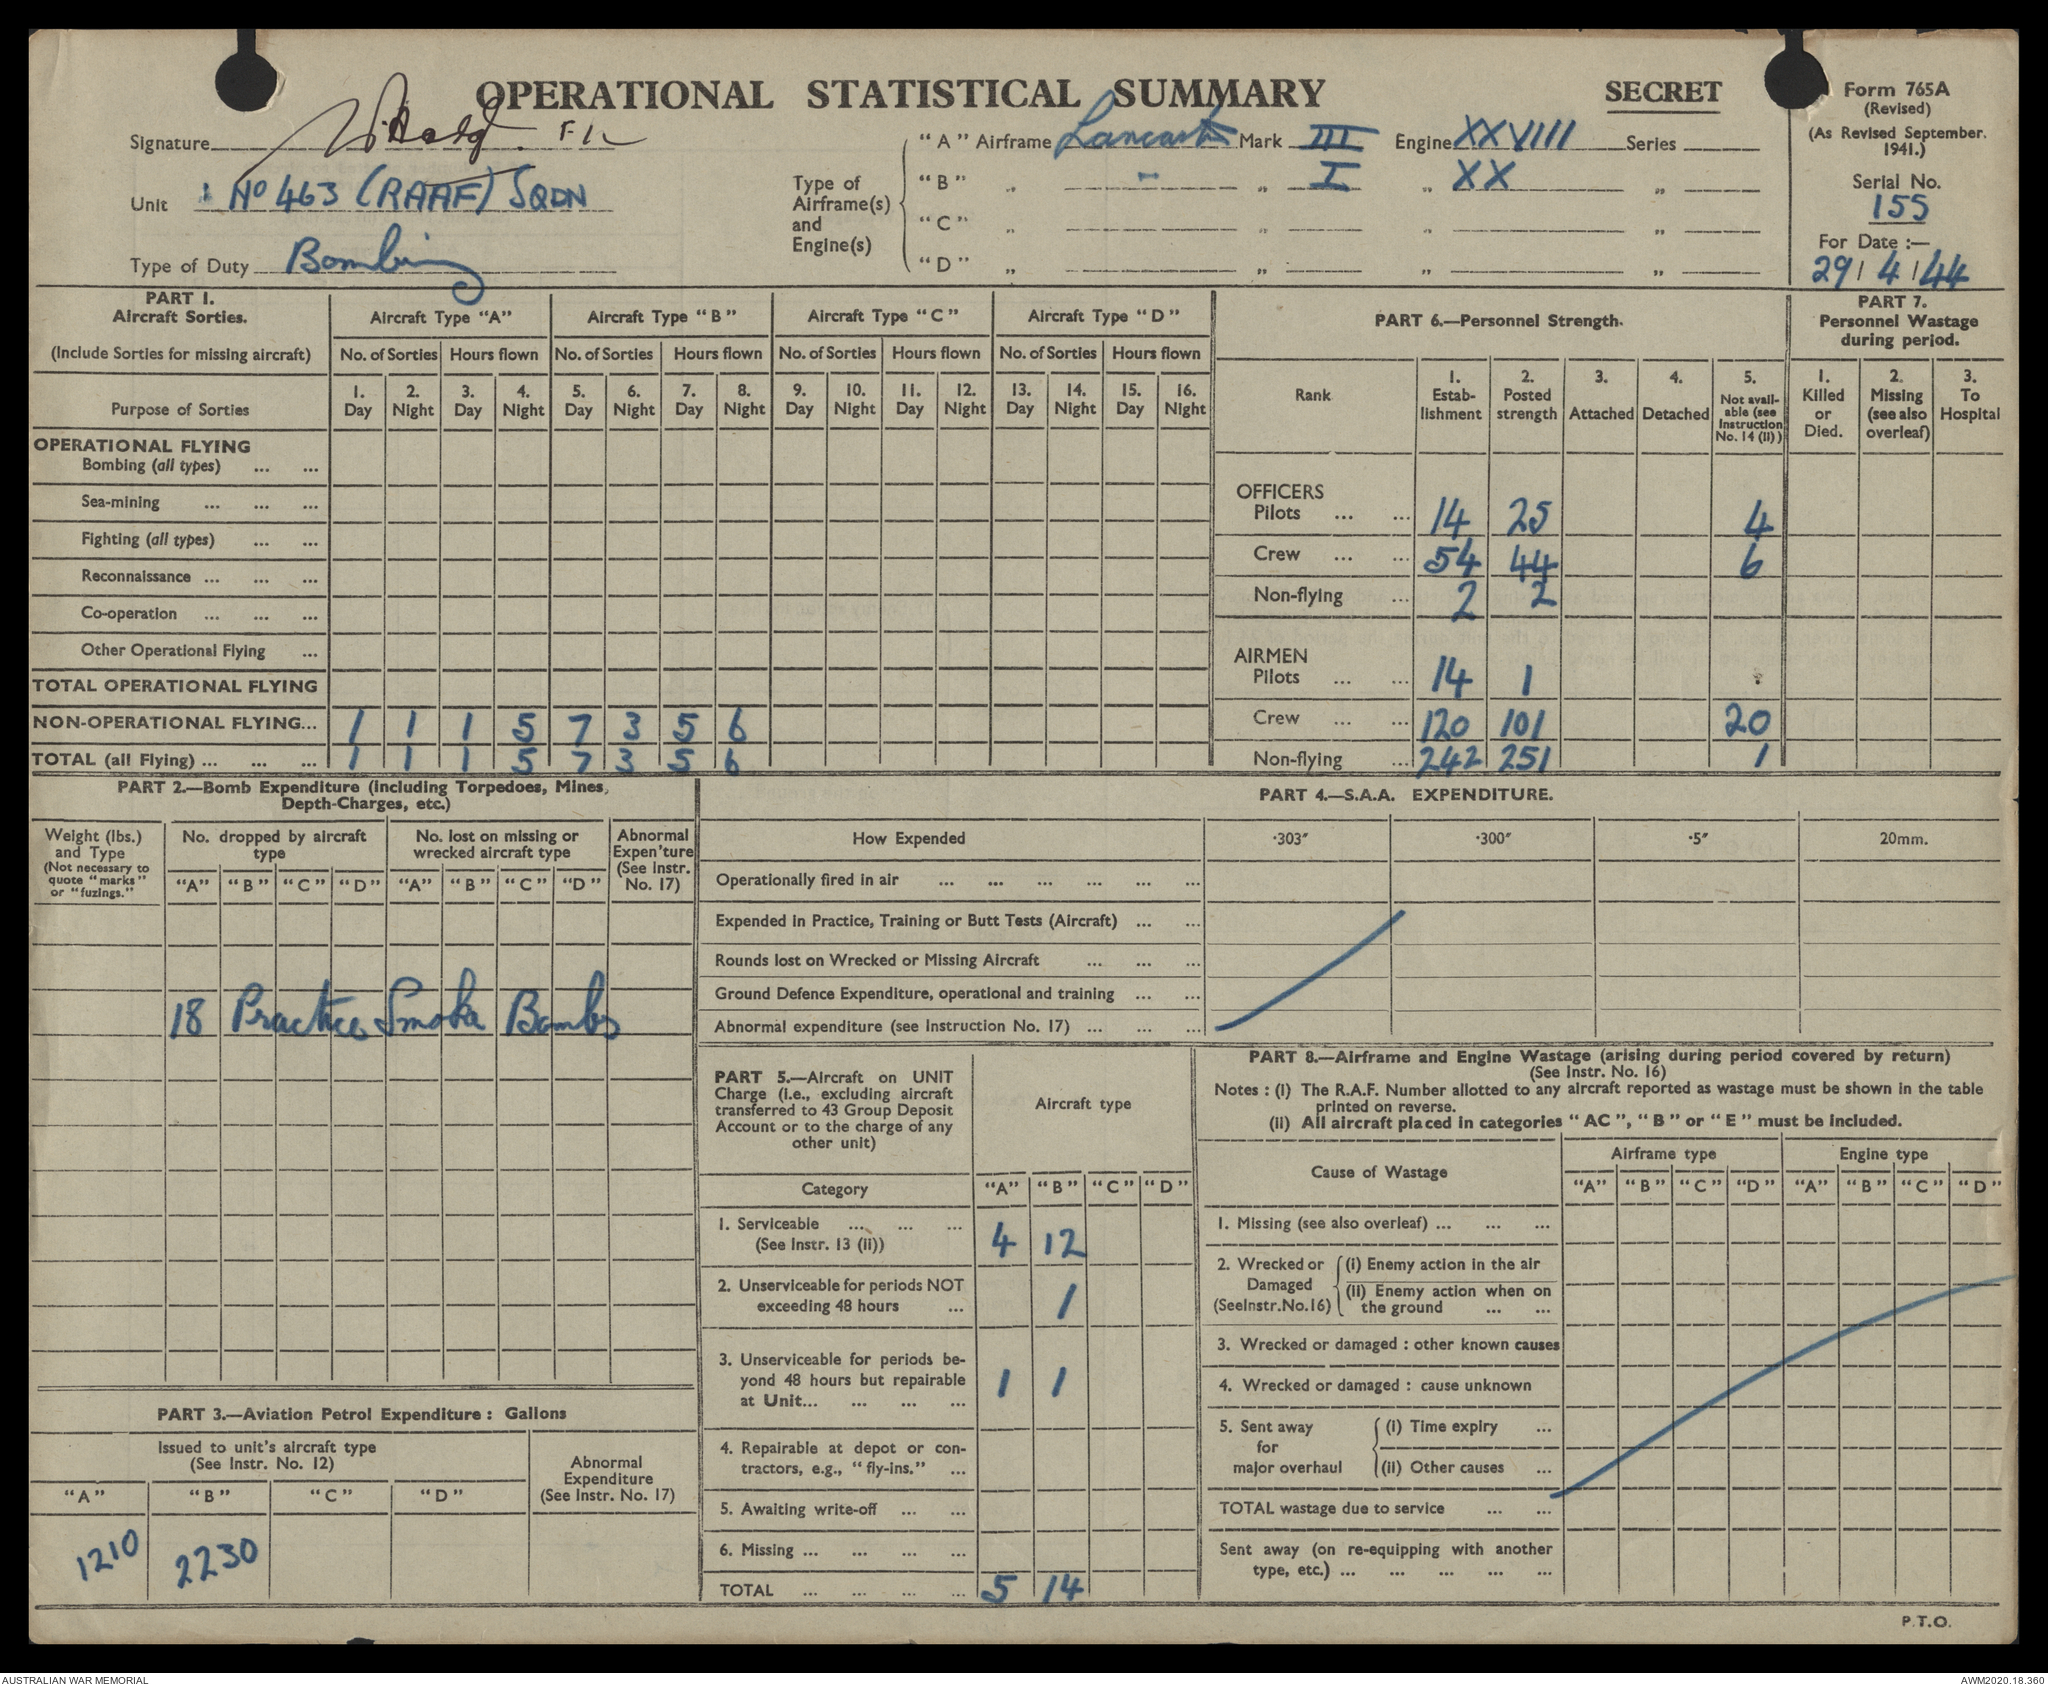 OPERATIONAL STATISTICAL SUMMARY
SECRET
Form 765A
(Revised)
(As Revised September, 1941.)
Serial No.
155
For Date :—
29/4/44
Signature F/L
Unit No 463 (RAAF) SQDN
Type of Duty Bombing
Type of Airframe(s) and Engine(s)
"A" Airframe Lancaster Mark III Engine XXVIII Series
"B" „ - „ I „ XX „
"C" „ „ „ „
"D" „ „ „ „
PART 1.
Aircraft Sorties.
(Include Sorties for missing aircraft)
Purpose of Sorties
Aircraft Type "A" Aircraft Type "B" Aircraft Type "C" Aircraft Type "D"
No. of Sorties Hours flown No. of Sorties Hours flown No. of Sorties Hours flown No. of Sorties Hours flown
1. Day 2. Night 3. Day 4. Night 5. Day 6. Night 7. Day 8. Night 9. Day 10. Night 11. Day 12. Night 13. Day 14. Night 15. Day 16. Night
OPERATIONAL FLYING
Bombing (all types) ... ...
Sea-mining ... ... ...
Fighting (all types) ... ...
Reconnaissance ... ... ...
Co-operation ... ... ...
Other Operational Flying ...
TOTAL OPERATIONAL FLYING
NON-OPERATIONAL FLYING... 1 1 1 5 7 3 5 6
TOTAL (all Flying) ... ... ... 1 1 1 5 7 3 5 6
PART 6.—Personnel Strength.
Rank
1. Estab-lishment
2. Posted strength
3. Attached
4. Detached
5. Not avail-able (see Instruction No. 14 (ii))
OFFICERS
Pilots ... ... 14 25 4
Crew ... ... 54 44 6
Non-flying ... 2 2
AIRMEN
Pilots ... ... 14 1
Crew ... ... 120 101 20
Non-flying ... 242 251 1
PART 7.
Personnel Wastage during period.
1. Killed or Died.
2. Missing (see also overleaf)
3. To Hospital
PART 2.—Bomb Expenditure (Including Torpedoes, Mines, Depth-Charges, etc.)
Weight (lbs.) and Type
(Not necessary to quote "marks" or "fuzings."
No. dropped by aircraft type
No. lost on missing or wrecked aircraft type
Abnormal Expen'ture (See Instr. No. 17)
"A" "B" "C" "D" "A" "B" "C" "D"
18 Practice Smoke Bombs
PART 3.—Aviation Petrol Expenditure : Gallons
Issued to unit's aircraft type
(See Instr. No. 12)
Abnormal Expenditure
(See Instr. No. 17)
"A" "B" "C" "D"
1210 2230
PART 4.—S.A.A. EXPENDITURE.
How Expended ·303" ·300" ·5" 20mm.
Operationally fired in air ... ... ... ... ... ...
Expended in Practice, Training or Butt Tests (Aircraft) ... ...
Rounds lost on Wrecked or Missing Aircraft ... ... ...
Ground Defence Expenditure, operational and training ... ...
Abnormal expenditure (see Instruction No. 17) ... ... ...
PART 5.—Aircraft on UNIT Charge (i.e., excluding aircraft transferred to 43 Group Deposit Account or to the charge of any other unit)
Aircraft type
Category "A" "B" "C" "D"
1. Serviceable ... ... ...
(See Instr. 13 (ii)) 4 12
2. Unserviceable for periods NOT exceeding 48 hours ... 1
3. Unserviceable for periods be-yond 48 hours but repairable at Unit... ... ... ... 1 1
4. Repairable at depot or con-tractors, e.g., "fly-ins." ...
5. Awaiting write-off ... ...
6. Missing ... ... ... ...
TOTAL ... ... ... ... 5 14
PART 8.—Airframe and Engine Wastage (arising during period covered by return)
(See Instr. No. 16)
Notes : (i) The R.A.F. Number allotted to any aircraft reported as wastage must be shown in the table printed on reverse.
(ii) All aircraft placed in categories "AC", "B" or "E" must be included.
Cause of Wastage
Airframe type Engine type
"A" "B" "C" "D" "A" "B" "C" "D"
1. Missing (see also overleaf) ... ... ...
2. Wrecked or Damaged (See Instr. No. 16)
(i) Enemy action in the air
(ii) Enemy action when on the ground ... ...
3. Wrecked or damaged : other known causes
4. Wrecked or damaged : cause unknown
5. Sent away for major overhaul
(i) Time expiry ...
(ii) Other causes ...
TOTAL wastage due to service ... ...
Sent away (on re-equipping with another type, etc.) ... ... ... ... ...
P.T.O.
AUSTRALIAN WAR MEMORIAL
AWM2020.18.360